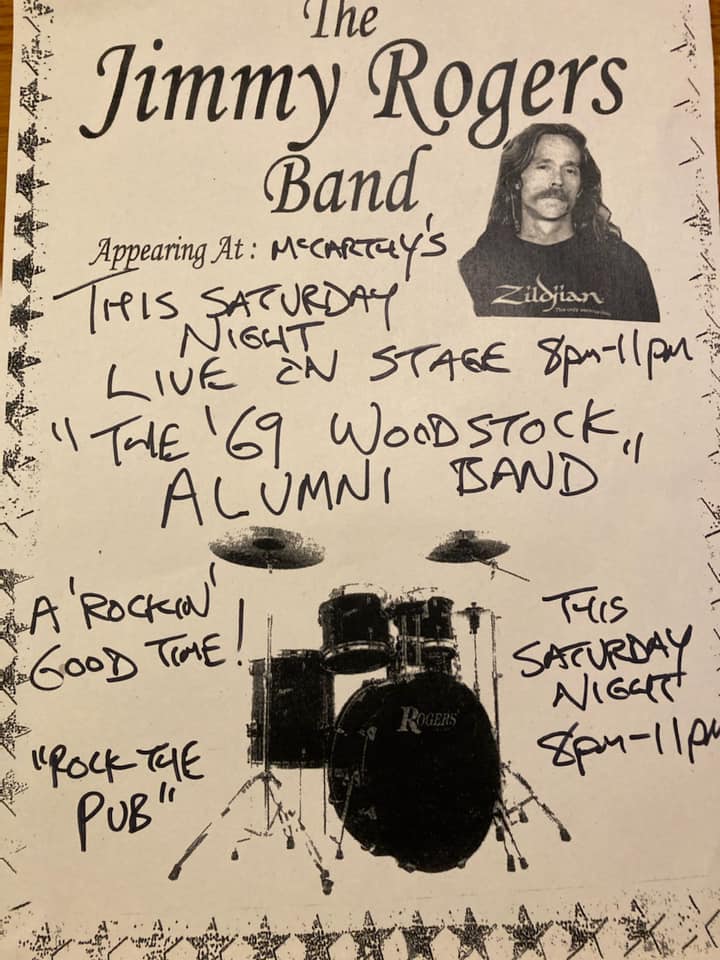 The
Jimmy Rogers
Band
Appearing At: McCARTHY'S
Zildjian
THIS SATURDAY
NIGHT
LIVE ON STAGE 8pm-11pm
"THE '69 WOODSTOCK
ALUMNI BAND"
A 'ROCKIN'
GOOD TIME!
"ROCK THE
PUB"
ROGERS
THIS
SATURDAY
NIGHT
8pm-11pm